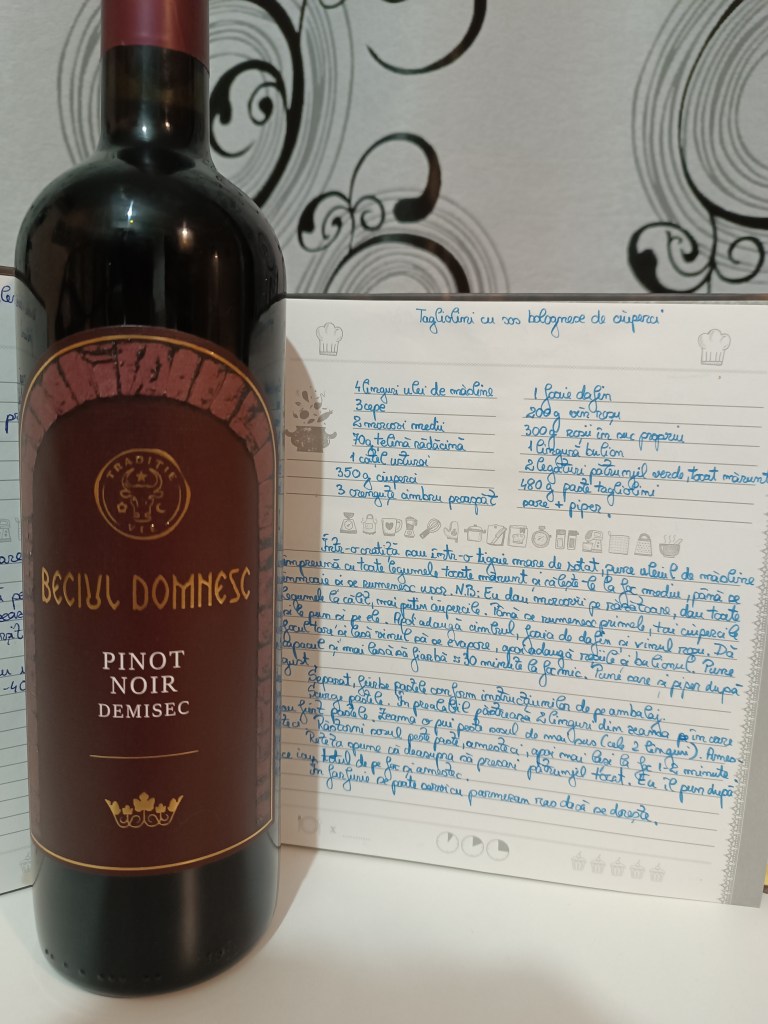 TRADIȚIE
VIE
BECIUL DOMNESC
PINOT
NOIR
DEMISEC
Tagliolini cu sos bolognese de ciuperci
4 linguri ulei de măsline
3 cepe
2 morcovi medii
70g țelină rădăcină
1 cățel usturoi
350 g ciuperci
3 crenguțe cimbru proaspăt
1 foaie dafin
200 g vin roșu
300 g roșii în suc propriu
1 lingură bulion
2 legături pătrunjel verde tocat mărunt
480 g paste tagliolini
sare + piper.
Într-o cratiță sau într-o tigaie mare de sotat, pune uleiul de măsline
împreună cu toate legumele tocate mărunt și călește-le la foc mediu, până se
înmoaie și se rumenesc ușor. N.B: Eu dau morcovii pe răzătoare, dau toate
legumele la călit, mai puțin ciupercile. Până se rumenesc primele, tai ciupercile
și le pun și pe ele. Apoi adaugă cimbrul, foaia de dafin și vinul roșu. Dă
focul tare și lasă vinul să se evapore, apoi adaugă roșiile și bulionul. Pune
capacul și mai lasă să fiarbă ≈ 30 minute la foc mic. Pune sare și piper după
gust.
Separat, fierbe pastele conform instrucțiunilor de pe ambalaj.
Scurge pastele. În prealabil păstrează 2 linguri din zeama în care
au fiert pastele. Zeama o pui peste sosul de mai sus (cele 2 linguri). Ames-
teci. Răstorni sosul peste paste, amesteci, apoi mai lași la foc 1-2 minute.
Rețeta spune că deasupra să presari pătrunjel tocat. Eu îl pun după
ce iau totul de pe foc și amestec.
În farfurie se poate servi cu parmezan ras dacă se dorește.